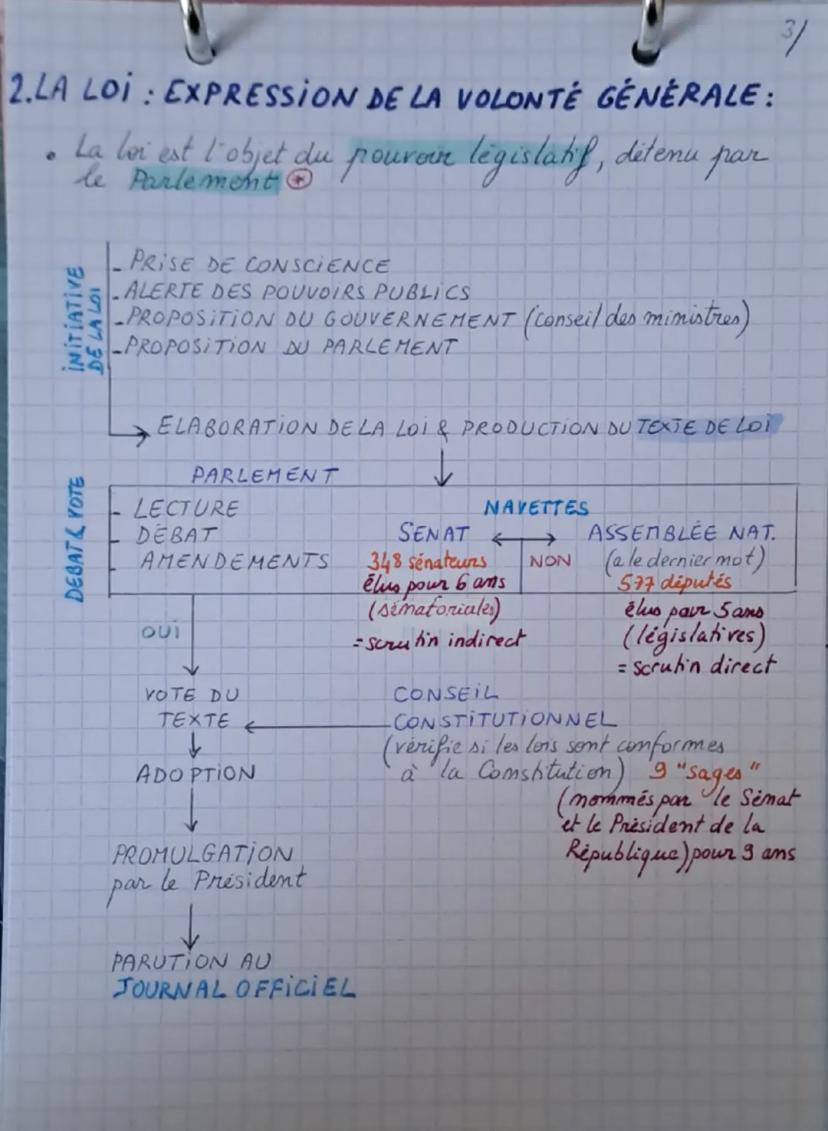 3/
2. LA LOI : EXPRESSION DE LA VOLONTÉ GÉNÉRALE :
• La loi est l'objet du pouvoir législatif, détenu par
le Parlement *
INITIATIVE
DE LA LOI
- PRISE DE CONSCIENCE
- ALERTE DES POUVOIRS PUBLICS
- PROPOSITION DU GOUVERNEMENT (conseil des ministres)
- PROPOSITION DU PARLEMENT
→ ELABORATION DE LA LOI & PRODUCTION DU TEXTE DE LOI
DEBAT & VOTE
PARLEMENT
- LECTURE
- DÉBAT
- AMENDEMENTS
NAVETTES
SENAT ↔ ASSEMBLÉE NAT.
348 sénateurs
élus pour 6 ans
(sénatoriales)
= scrutin indirect
NON
(a le dernier mot)
577 députés
élus pour 5 ans
(législatives)
= scrutin direct
OUI
VOTE DU
TEXTE
CONSEIL
CONSTITUTIONNEL
(vérifie si les lois sont conformes
à la Constitution) 9 "sages"
(nommés par le Sénat
et le Président de la
République) pour 9 ans
ADOPTION
PROMULGATION
par le Président
PARUTION AU
JOURNAL OFFICIEL